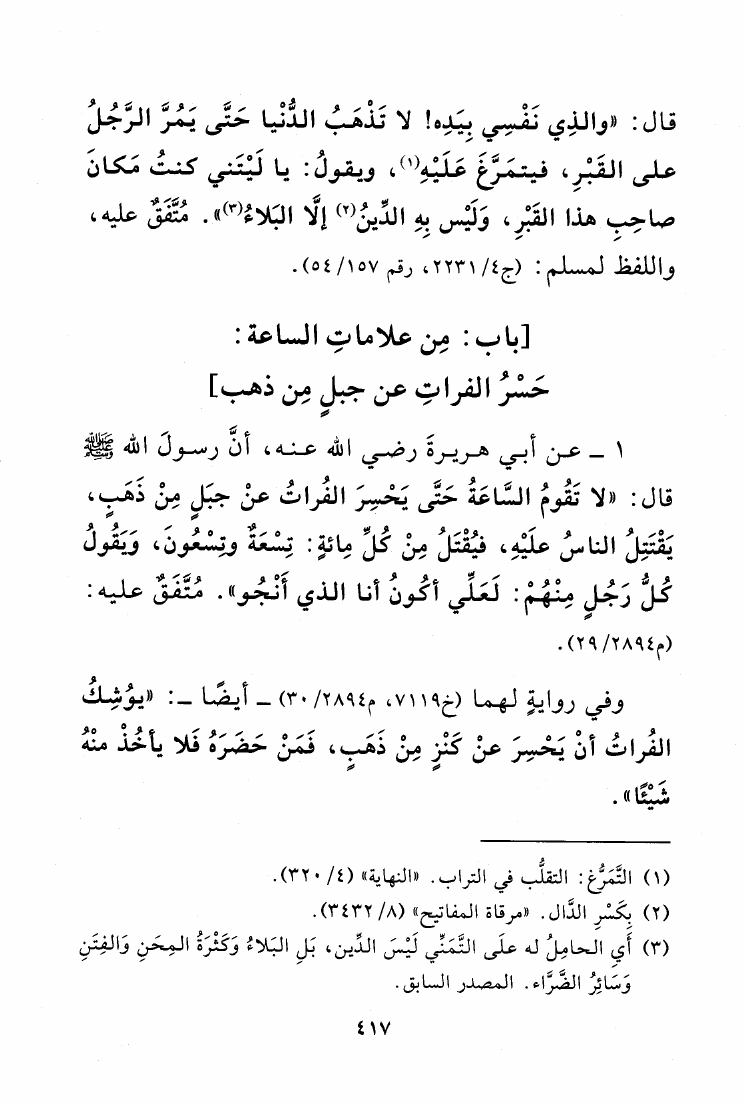 قال: «والذِي نَفْسِي بِيَدِه! لا تَذْهَبُ الدُّنْيا حَتَّى يَمُرَّ الرَّجُلُ
على القَبْرِ، فيتمَرَّغَ عَلَيْهِ(١)، ويقولُ: يا لَيْتَني كنتُ مَكانَ
صاحِبِ هذا القَبْرِ، وَلَيْس بِهِ الدِّينُ(٢) إلَّا البَلاءُ(٣)». مُتَّفَقٌ عليه،
واللفظ لمسلم: (ج٤/ ٢٢٣١، رقم ١٥٧/ ٥٤).
[باب: مِن علاماتِ الساعة:
حَسْرُ الفراتِ عن جبلٍ مِن ذهب]
١ ـ عـن أبـي هـريـرةَ رضـي الله عـنـه، أنَّ رسـولَ الله ﷺ
قال: «لا تَقُومُ السَّاعَةُ حَتَّى يَحْسِرَ الفُراتُ عنْ جبَلٍ مِنْ ذَهَبٍ،
يَقْتَتِلُ الناسُ علَيْهِ، فيُقْتَلُ مِنْ كُلِّ مِائةٍ: تِسْعَةٌ وتِسْعُونَ، وَيَقُولُ
كُلُّ رَجُلٍ مِنْهُمْ: لَعَلِّي أكُونُ أنا الذي أَنْجُو». مُتَّفَقٌ عليه:
(م٢٨٩٤/ ٢٩).
وفي روايةٍ لهما (خ٧١١٩، م٢٨٩٤/ ٣٠) ـ أيضًا ـ: «يوُشِكُ
الفُراتُ أنْ يَحْسِرَ عنْ كَنْزٍ مِنْ ذَهَبٍ، فَمَنْ حَضَرَهُ فَلا يأخُذْ منْهُ
شَيْئًا».
(١) التَّمَرُّغ: التقلُّب في التراب. «النهاية» (٤/ ٣٢٠).
(٢) بِكَسْرِ الدَّال. «مرقاة المفاتيح» (٨/ ٣٤٣٢).
(٣) أَيِ الحامِلُ له علَى التَّمَنِّي لَيْسَ الدِّين، بَلِ البَلاءُ وَكَثْرَةُ المِحَنِ وَالفِتَنِ
وَسَائِرُ الضَّرَّاء. المصدر السابق.
٤١٧